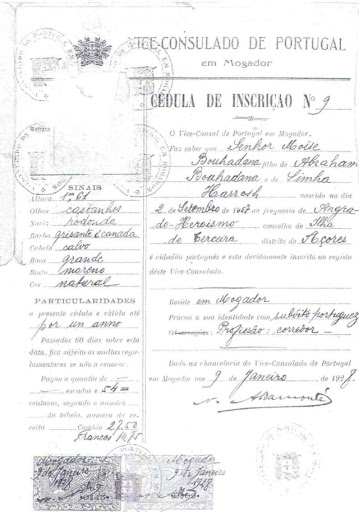 VICE-CONSULADO DE PORTUGAL
em Mogador
CÉDULA DE INSCRIÇÃO Nº 9
O Vice-Consul de Portugal em Mogador.
Faz saber que Senhor Moïse
Bouhadana filho de Abraham
Bouhadana e de Simha
Harrosh nascido no dia
2 de Setembro de 1857 na freguesia de Angra-
do-Heroismo concelho de Ilha
de Terceira distrito de Açores
é cidadão português e está devidamente inscrito no registo
dêste Vice-Consulado.
Reside em Mogador
Provou a sua identidade com
Observações: Profissão: corredor
Dado na chancelaria do Vice-Consulado de Portugal
em Mogador aos 9 de Janeiro de
Retrato
SINAIS
Altura 1m61
Olhos castanhos
Nariz redondo
Barba
Cabelo calvo
Boca grande
Rosto moreno
Cor natural
PARTICULARIDADES
A presente cédula é válida até
por un anno
Passados 60 dias sobre esta
data, fica sujeito as multas regu-
lamentares se não a renovar.
Pagou a quantia de
escudos e 54
centavos, segundo o número
da tabela, numero de re-
ceita Cambio 27.50
Francos
Mogador
9 de Janeiro
Mogador
9 de Janeiro